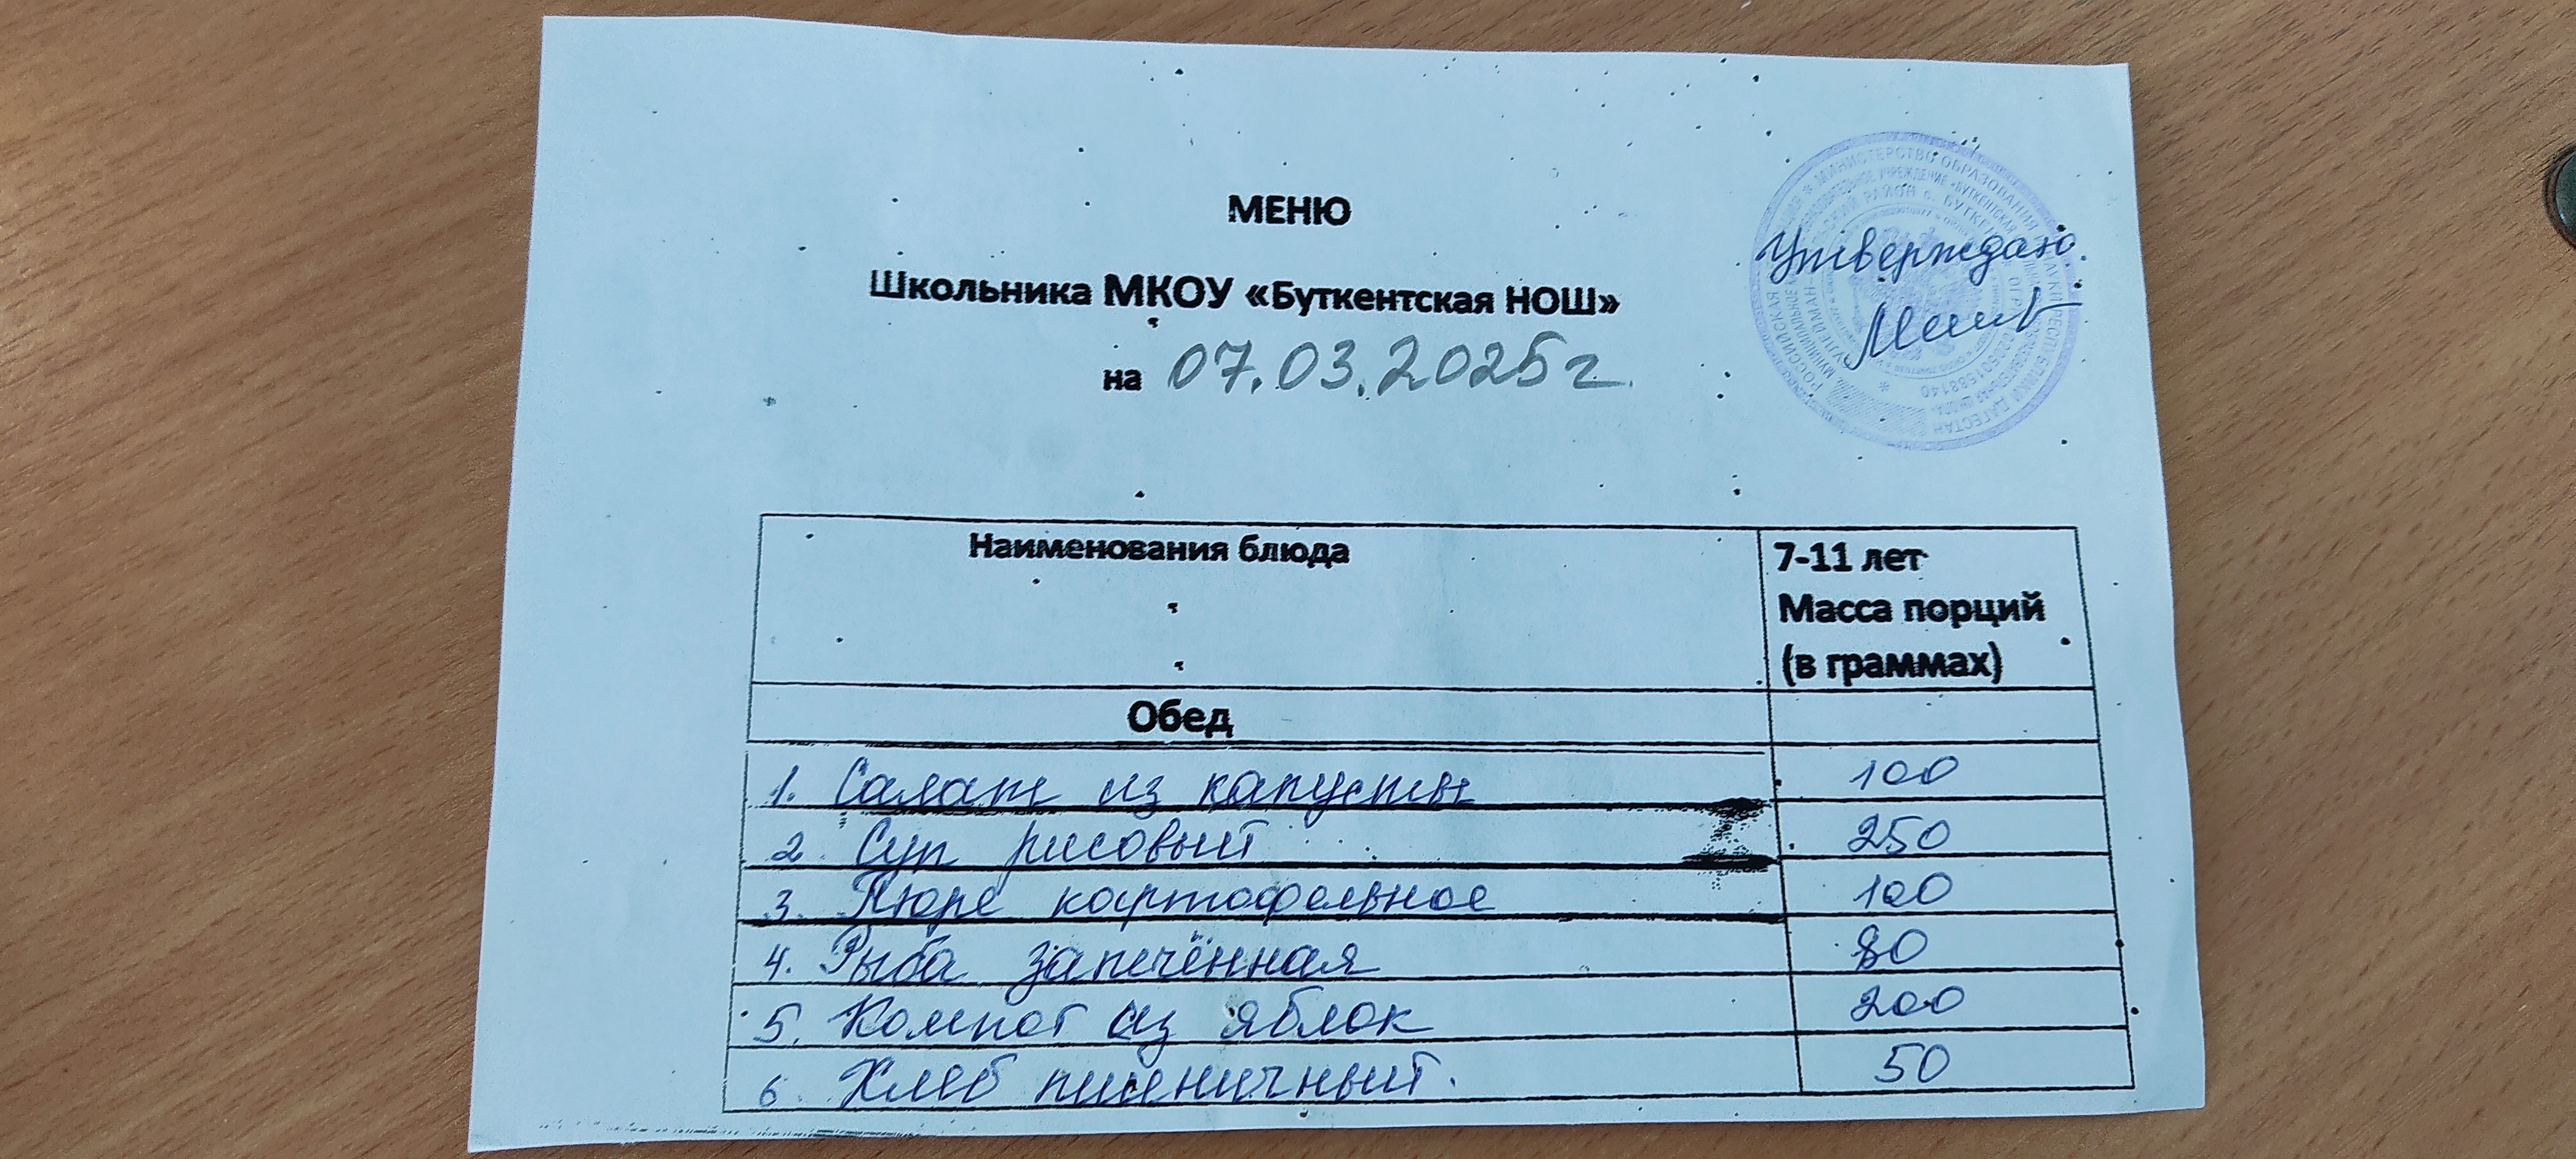 МЕНЮ
Школьника МКОУ «Буткентская НОШ»
на 07.03.2025г.
Утверждаю
Наименования блюда
7-11 лет
Масса порций
(в граммах)
Обед
1. Салат из капусты 100
2. Суп рисовый 250
3. Пюре картофельное 100
4. Рыба запечённая 80
5. Компот из яблок 200
6. Хлеб пшеничный. 50